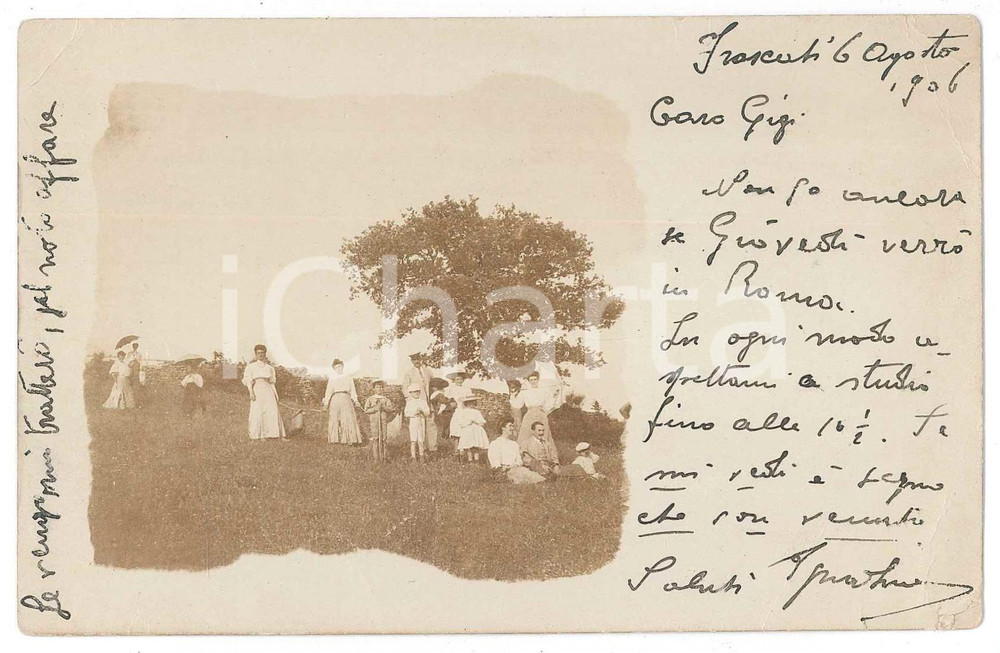 Frascati 6 Agosto
906
Caro Gigi
Non so ancora
se Giovedì verrò
in Roma.
In ogni modo a-
spettami a studio
fino alle 16 ½. Se
mi vedi è segno
che son venuto
Saluti
Se vengo mi tratterò, pel noto affare
iCharta